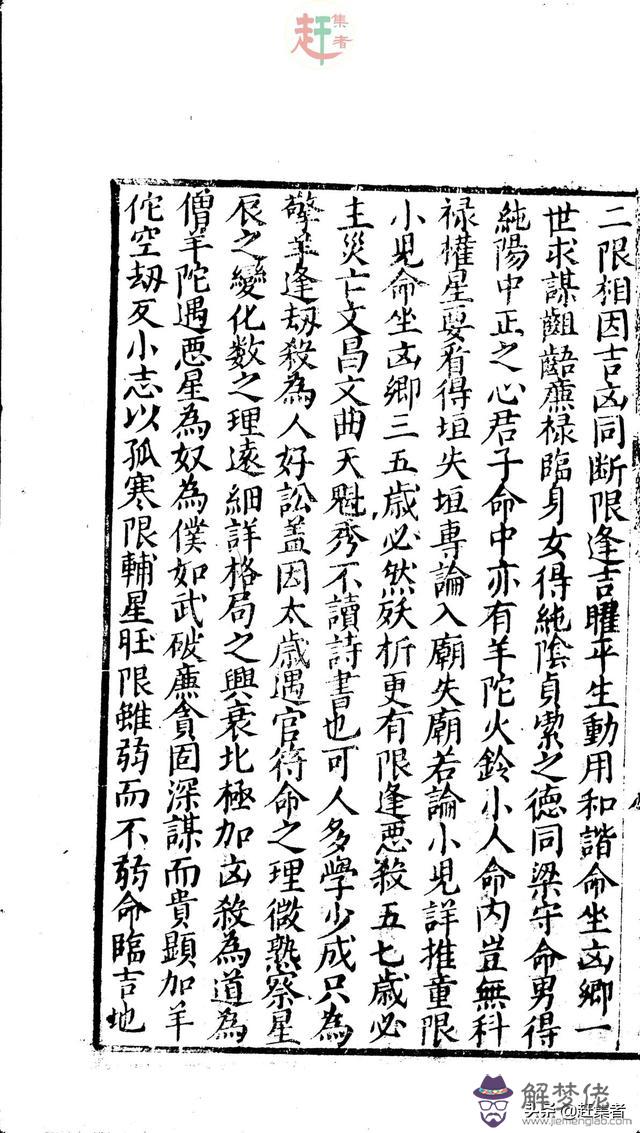 赶集者
二限相因吉凶同断限逢吉曜平生動用和諧命坐凶鄉一
世求謀齟齬廉祿臨身女得純陰貞潔之德同梁守命男得
純陽中正之心君子命中亦有羊陀火鈴小人命内豈無科
祿權星要看得垣失垣專論入廟失廟若論小兒詳推童限
小兒命坐凶鄉三五歲必然殀折更有限逢惡殺五七歲必
主災亡文昌文曲天魁秀不讀詩書也可人多學少成只為
擎羊逢劫殺為人好訟盖因太歲遇官符命之理微熟察星
辰之變化数之理遠細詳格局之興衰北極加凶殺為道為
僧羊陀遇惡星為奴為僕如武破廉貪固深謀而貴顯加羊
佗空刼反小志以孤寒限輔星旺限雖弱而不弱命臨吉地
解梦佬
www.jiemenglao.com
头条@赶集者